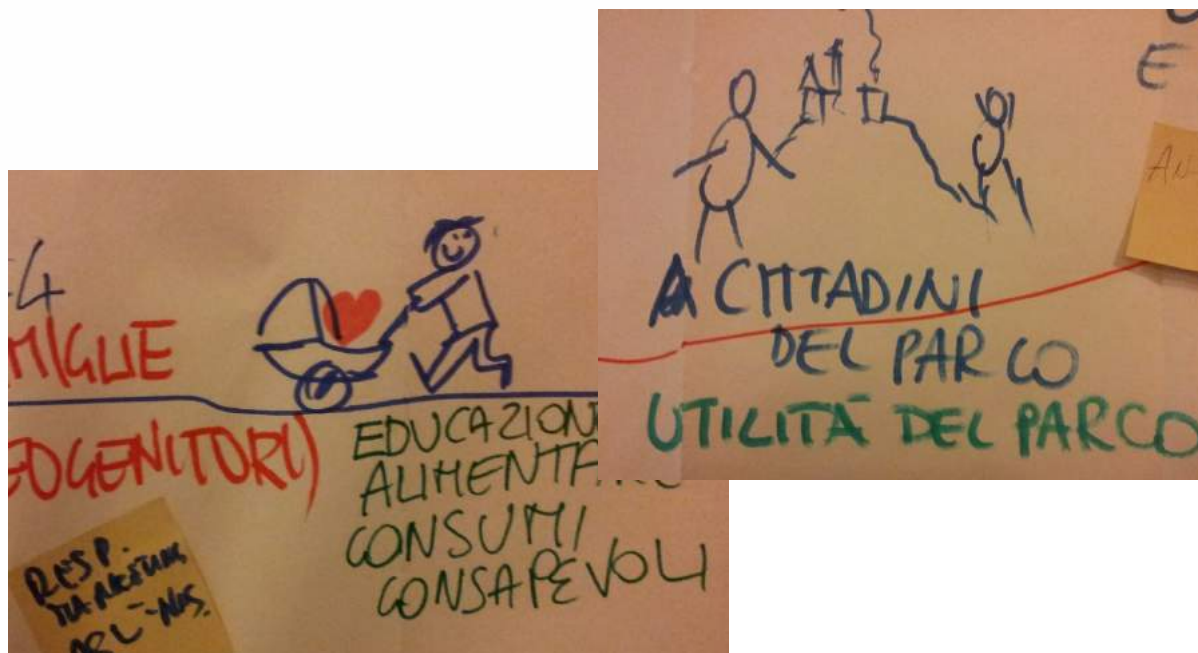 MIGLIE
EOGENITORI)
EDUCAZIONE
ALIMENTARE
CONSUMI
CONSAPEVOLI
RESP.
E
AN
A CITTADINI
DEL PARCO
UTILITÀ DEL PARCO